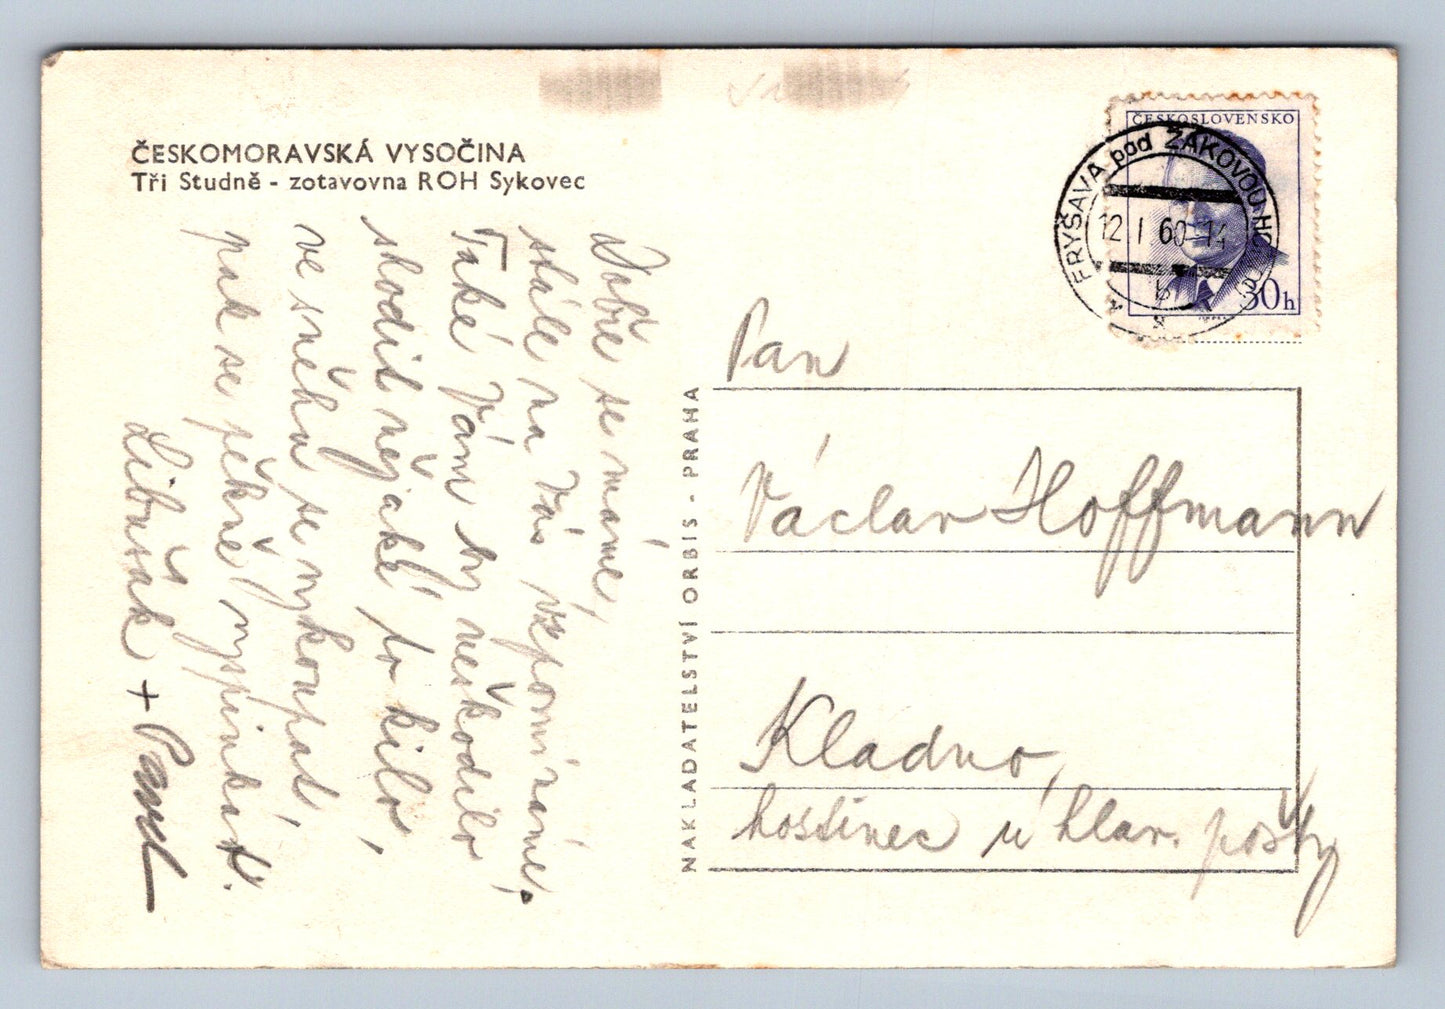 ČESKOMORAVSKÁ VYSOČINA
Tři Studně - zotavovna ROH Sykovec
Dobře se máme,
stále na Vás vzpomínáme,
Také Vám by neškodilo
shodit nějaké to kilo,
ve sněhu se vykoupat,
pak se pěkně vyspinkat.
Libušák + Pavel
NAKLADATELSTVÍ ORBIS - PRAHA
ČESKOSLOVENSKO
30h
FRYŠAVA pod ŽÁKOVOU HOROU
12 I 60-14
b
Pan
Václav Hoffmann
Kladno,
hostinec u hlav. pošty